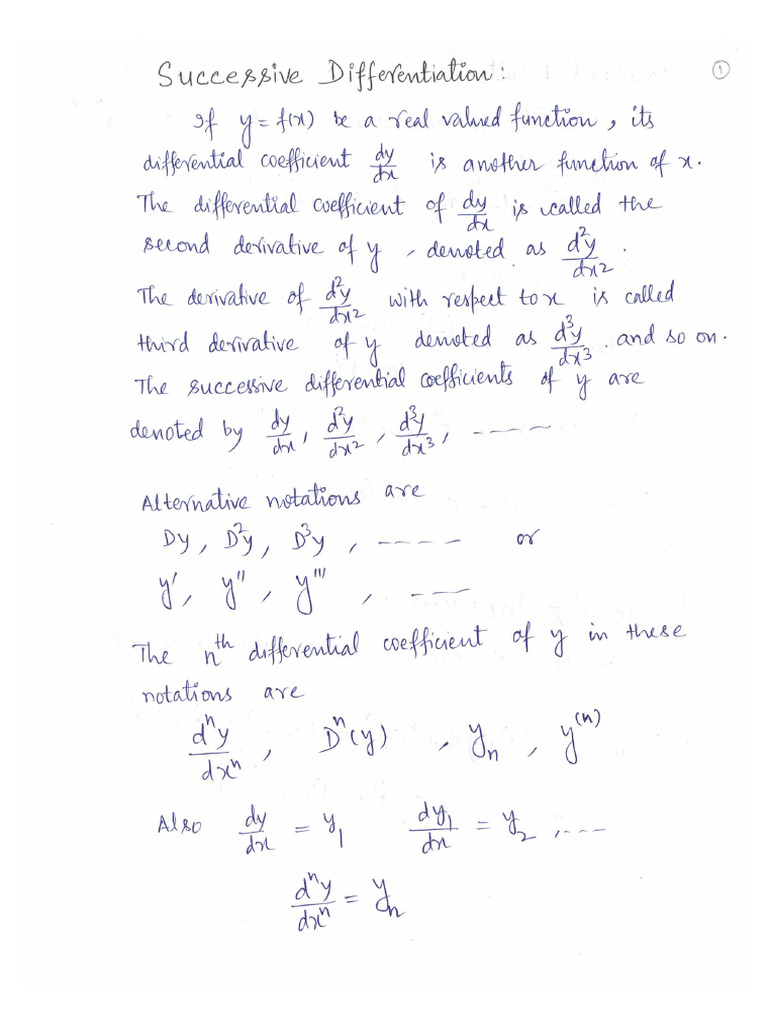 Successive Differentiation: ①
If y = f(x) be a real valued function, its
differential coefficient dy/dx is another function of x.
The differential coefficient of dy/dx is called the
second derivative of y, denoted as d²y/dx².
The derivative of d²y/dx² with respect to x is called
third derivative of y denoted as d³y/dx³. and so on.
The successive differential coefficients of y are
denoted by dy/dx, d²y/dx², d³y/dx³, -----
Alternative notations are
Dy, D²y, D³y, ---- or
y', y'', y''', ---
The nᵗʰ differential coefficient of y in these
notations are
dⁿy/dxⁿ, Dⁿ(y), yₙ, y⁽ⁿ⁾
Also dy/dx = y₁ dy₁/dx = y₂, ---
dⁿy/dxⁿ = yₙ